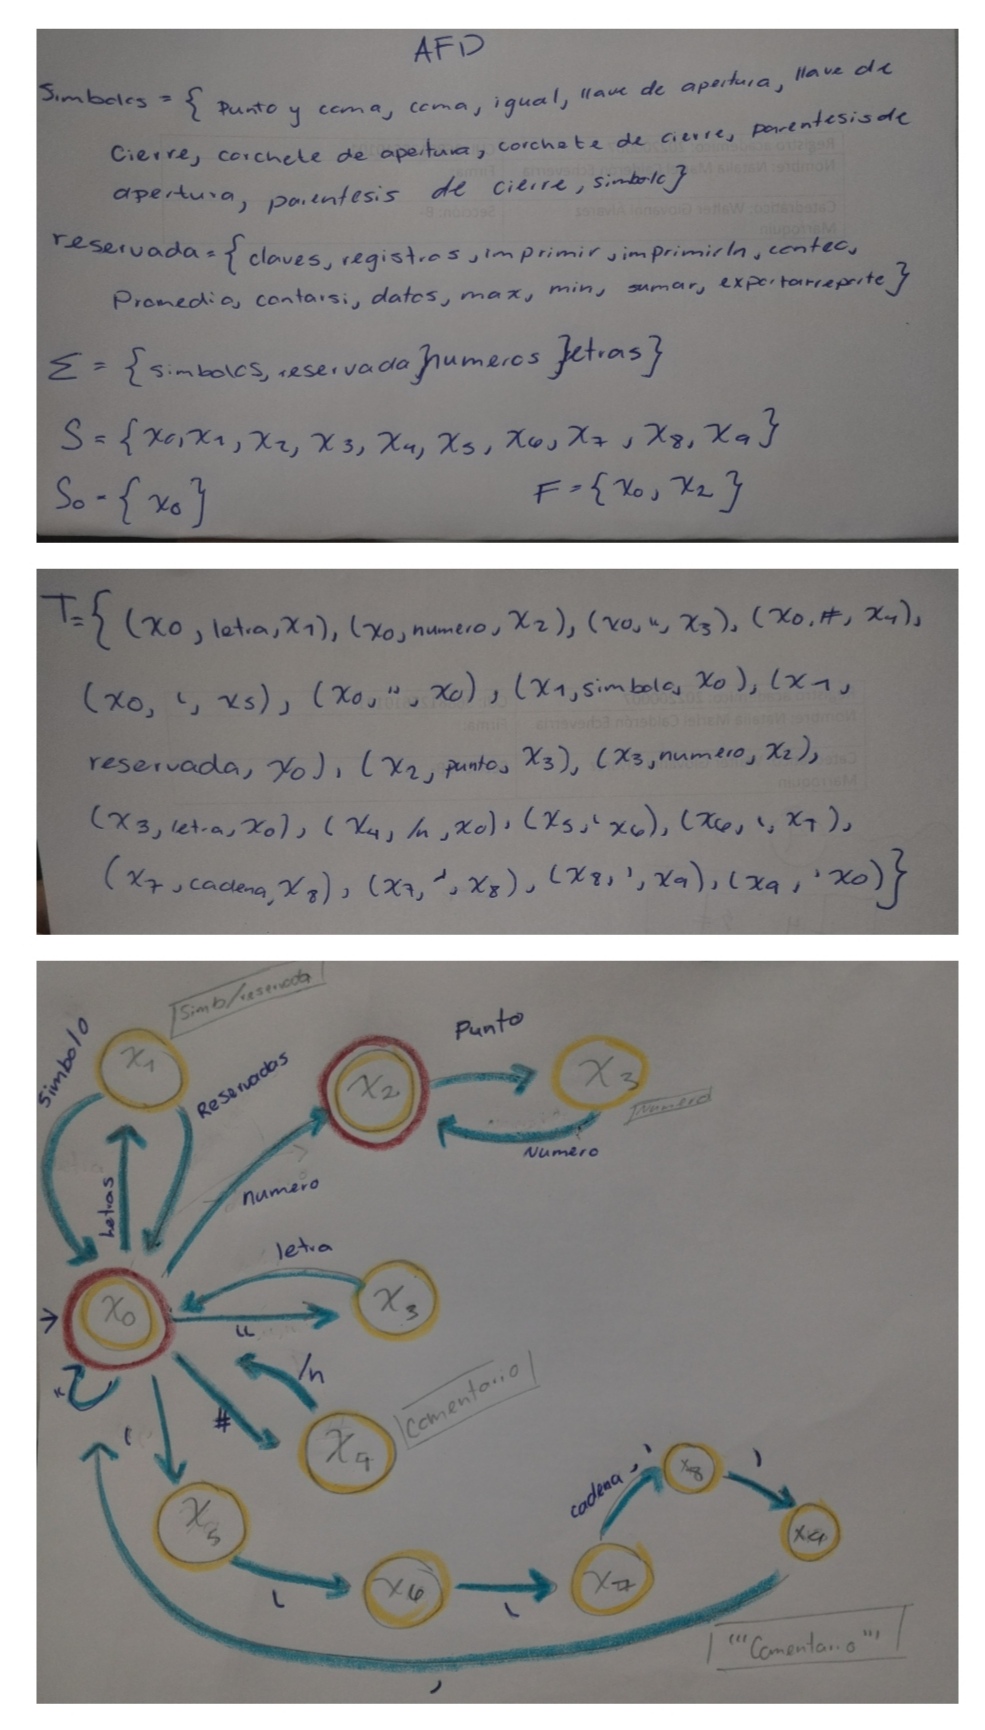 AFD
Simbolos = { Punto y coma, coma, igual, llave de apertura, llave de
Cierre, corchete de apertura, corchete de cierre, parentesis de
apertura, parentesis de cierre, simbolo}
reservada = { claves, registros, imprimir, imprimirln, conteo,
Promedio, contarsi, datos, max, min, sumar, exportarreporte }
Σ = { simbolos, reservada }numeros }letras}
S = { x0, x1, x2, x3, x4, x5, x6, x7, x8, x9 }
S0 = { x0 }
F = { x0, x2 }
T={ (x0, letra, x1), (x0, numero, x2), (x0, “, x3), (x0, #, x4),
(x0, ‘, x5), (x0, ", x0), (x1, simbolo, x0), (x1,
reservada, x0), (x2, punto, x3), (x3, numero, x2),
(x3, letra, x0), (x4, /n, x0), (x5, ‘ x6), (x6, ‘, x7),
(x7, cadena, x8), (x7, ’, x8), (x8, ’, x9), (x9, ’ x0)}
Simb/reservada
Simbolo
x1
Reservadas
letras
x2
Punto
x3
Numero
Numero
numero
x0
letra
“
x3
“
‘
#
/n
x4
Comentario
x5
‘
x6
‘
x7
cadena, ’
x8
’
x9
’
"'Comentario"'